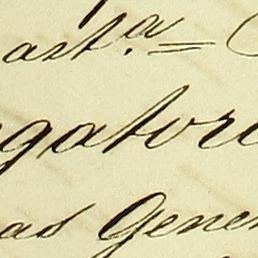 ast.ª
gatori
as Gener